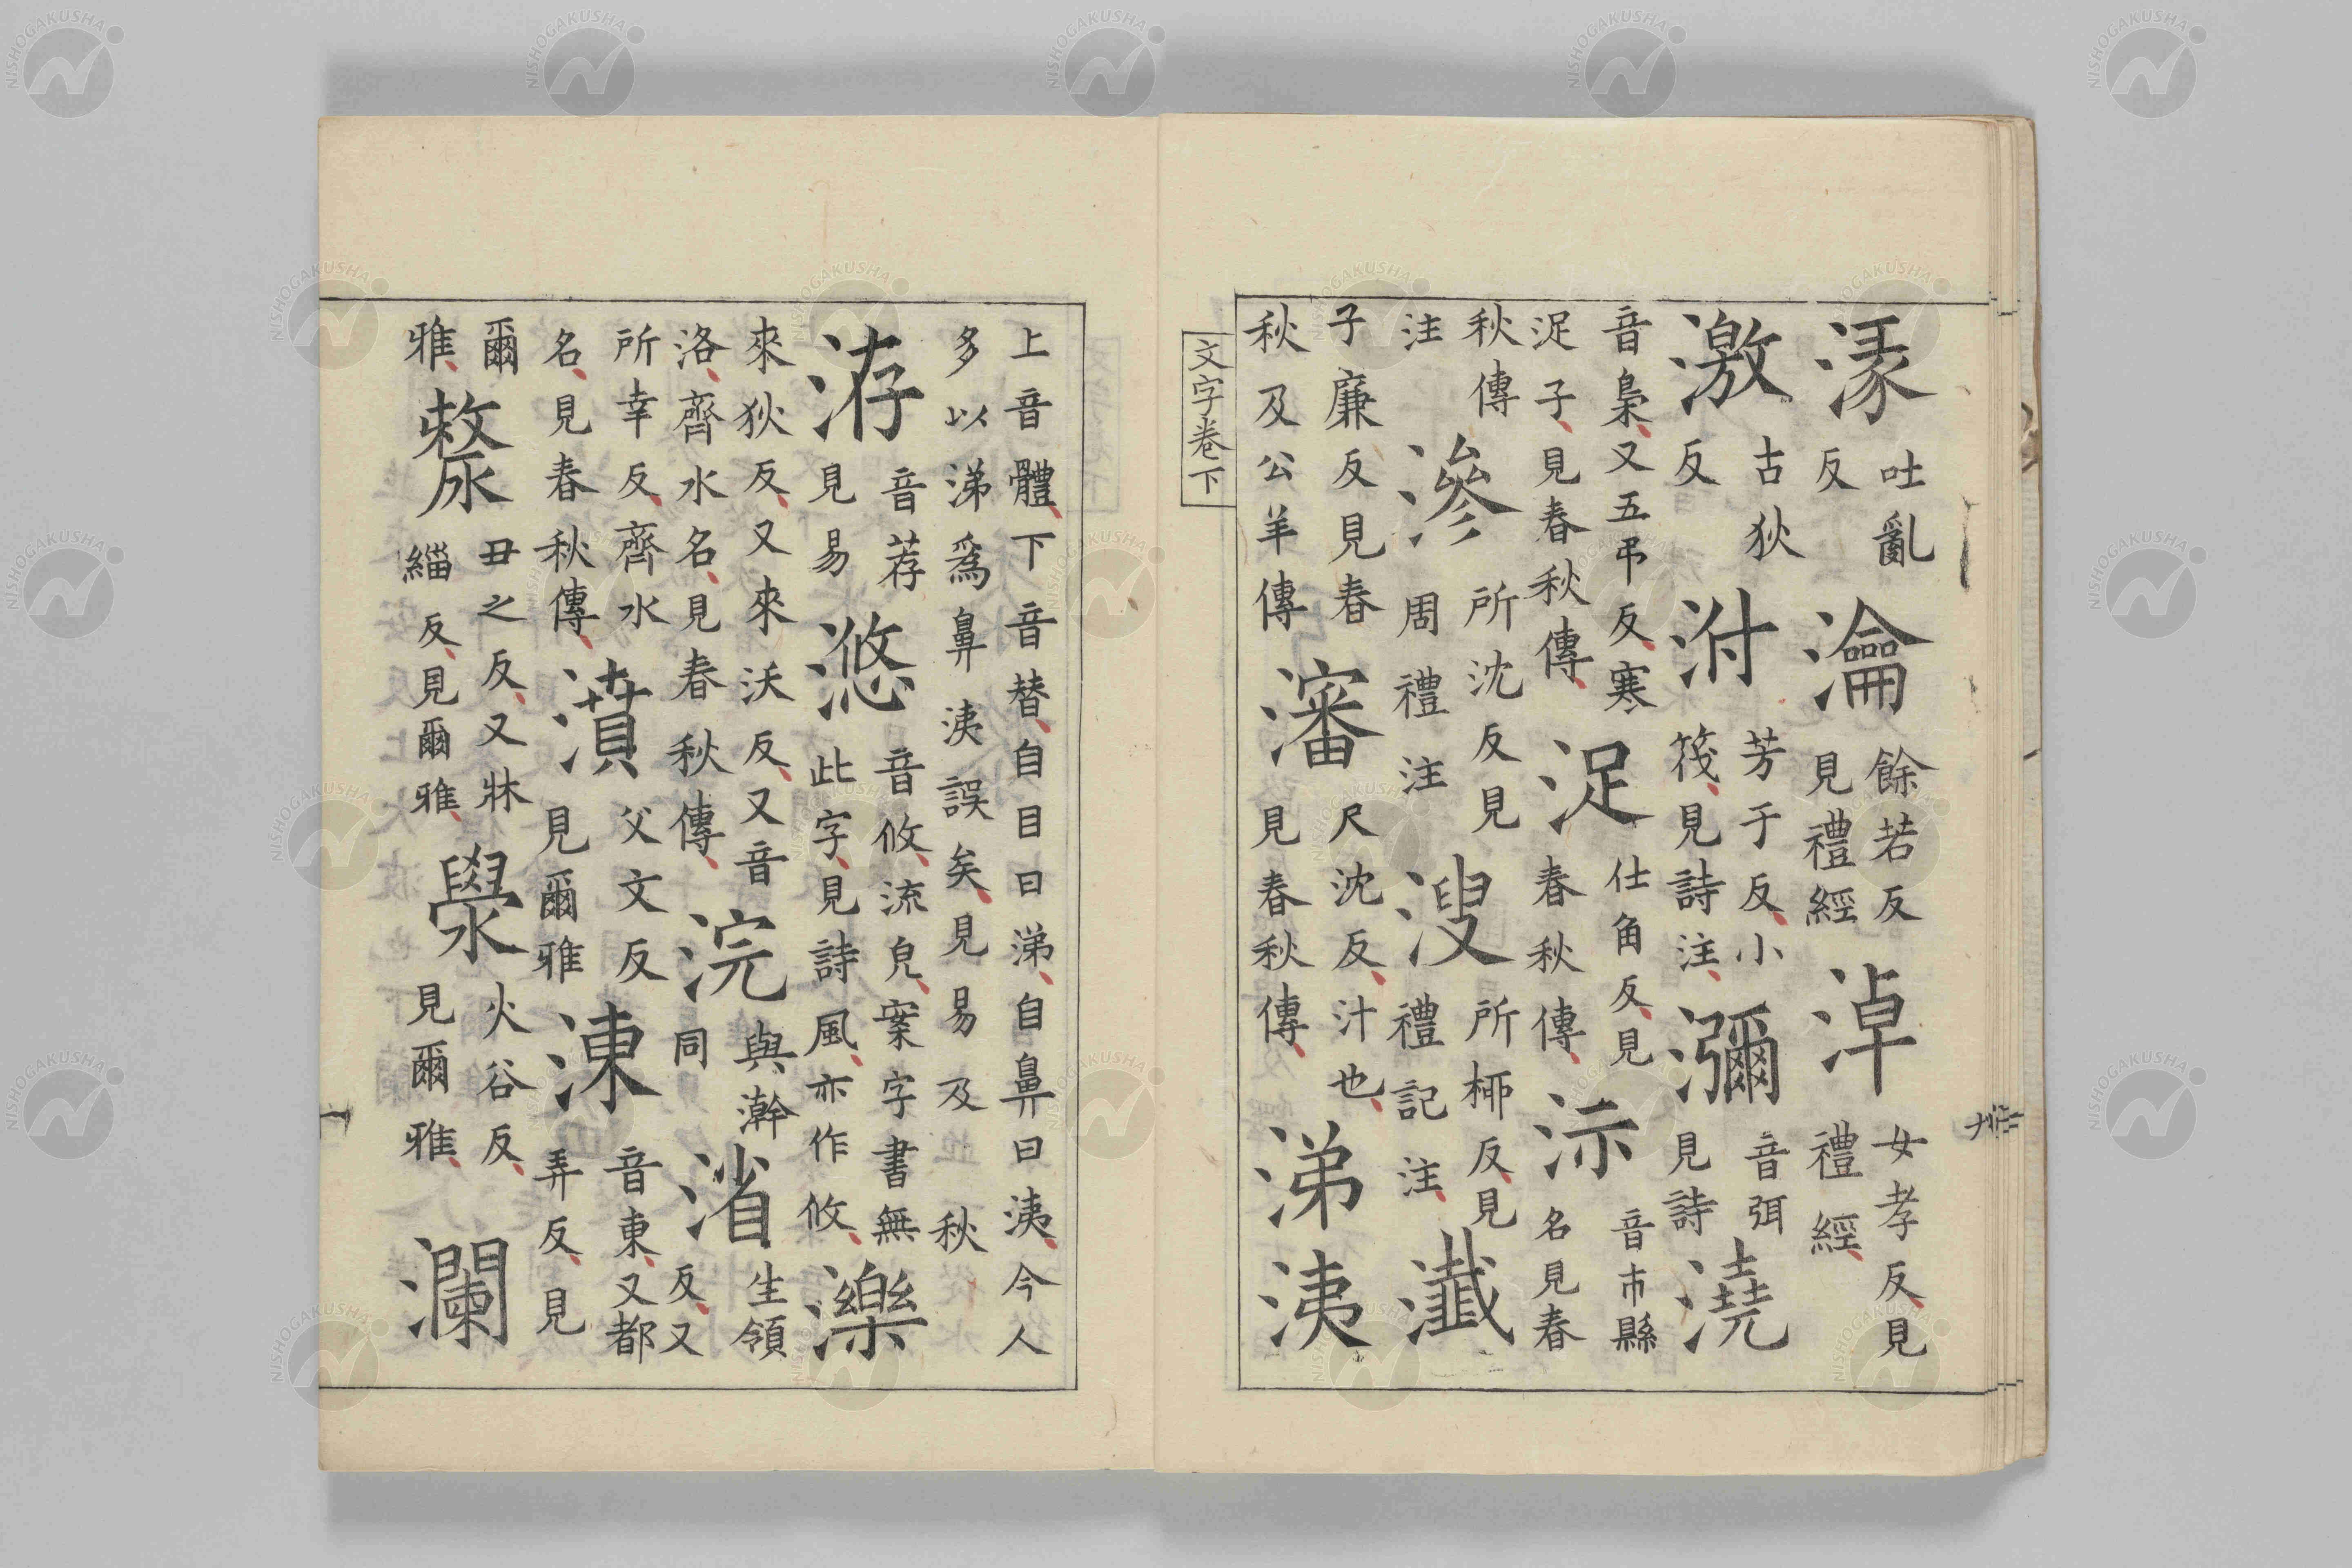 湪吐亂反瀹餘若反見禮經淖女孝反見禮經
激古狄反泭芳于反小筏見詩注瀰音弭見詩澆
音梟又五弔反寒浞子見春秋傳浞仕角反見春秋傳沶音市縣名見春
秋傳注滲所沈反見周禮注溲所柳反見禮記注瀸
子廉反見春秋及公羊傳瀋尺沈反汁也見春秋傳涕洟
文字卷下
上音體下音替自目曰涕自鼻曰洟今人多以涕爲鼻洟誤矣見易及秋
洊音荐見易滺音攸流皃案字書無此字見詩風亦作攸濼
來狄反又來沃反又音洛齊水名見春秋傳浣與澣同渻生領反又
所幸反齊水名見春秋傳濆父文反見爾雅涷音東又都弄反見
爾雅漦丑之反又牀緇反見爾雅澩火谷反見爾雅瀾
NISHOGAKUSHA